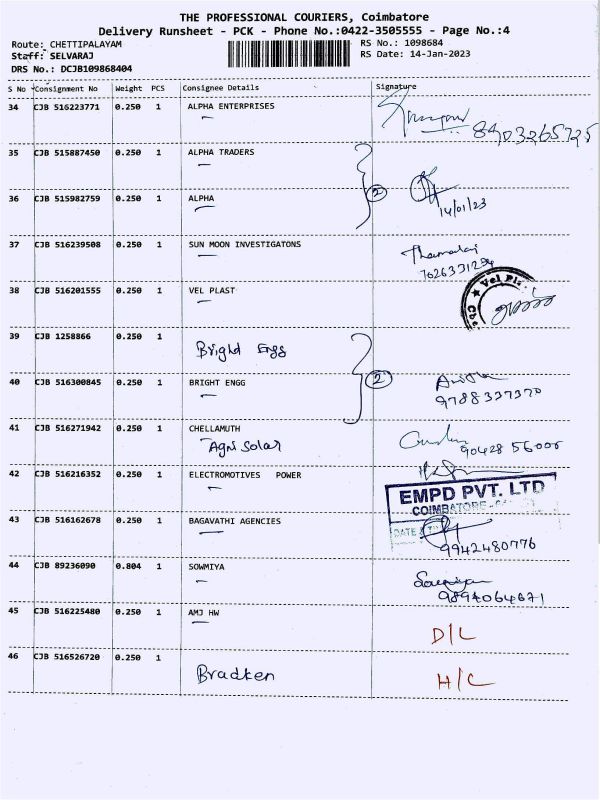 THE PROFESSIONAL COURIERS, Coimbatore
Delivery Runsheet - PCK - Phone No.:0422-3505555 - Page No.:4
Route: CHETTIPALAYAM RS No.: 1098684
Staff: SELVARAJ RS Date: 14-Jan-2023
DRS No.: DCJB109868404
S No Consignment No Weight PCS Consignee Details Signature
34 CJB 516223771 0.250 1 ALPHA ENTERPRISES
8903265725
35 CJB 515887450 0.250 1 ALPHA TRADERS
36 CJB 515982759 0.250 1 ALPHA 2
14/01/23
37 CJB 516239508 0.250 1 SUN MOON INVESTIGATONS
38 CJB 516201555 0.250 1 VEL PLAST
39 CJB 1258866 0.250 1 Bright Engg
40 CJB 516300845 0.250 1 BRIGHT ENGG 2
9788337370
41 CJB 516271942 0.250 1 CHELLAMUTH
Agni Solar
42 CJB 516216352 0.250 1 ELECTROMOTIVES POWER
EMPD PVT. LTD
COIMBATORE
43 CJB 516162678 0.250 1 BAGAVATHI AGENCIES
DATE
9942480776
44 CJB 89236090 0.804 1 SOWMIYA
9894064671
45 CJB 516225480 0.250 1 AMJ HW
D/L
46 CJB 516526720 0.250 1 Bradken H/C